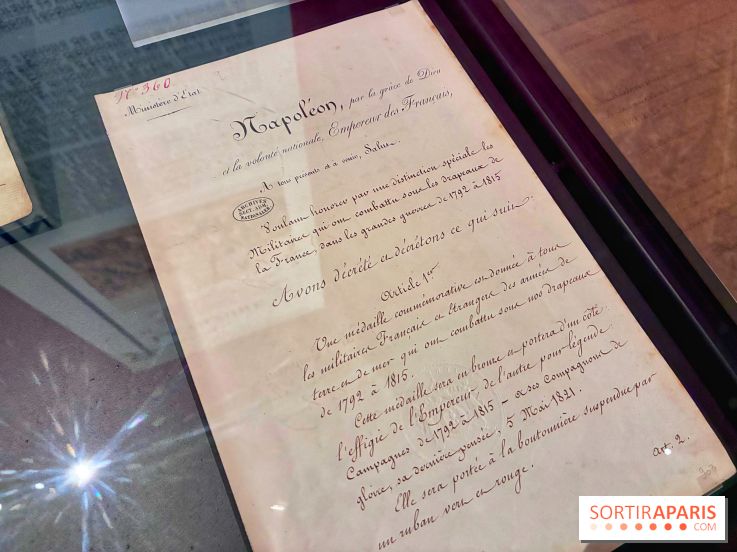 N° 360
Ministère d'Etat
Napoléon, par la grâce de Dieu
et la volonté nationale, Empereur des Français,
A tous présents et à venir, Salut.
ARCHIVES
SECT. ADM.
NATIONALES
Voulant honorer par une distinction spéciale les
Militaires qui ont combattu sous les drapeaux de
la France, dans les grandes guerres de 1792 à 1815
Avons décrété et décrétons ce qui suit:
Article 1er
Une médaille commémorative est donnée à tous
les militaires Français et étrangers des armées de
terre et de mer qui ont combattu sous nos drapeaux
de 1792 à 1815.
Cette médaille sera en bronze et portera d'un côté
l'effigie de l'Empereur, de l'autre pour légende
Campagnes de 1792 à 1815 – à ses compagnons de
gloire, sa dernière pensée, 5 Mai 1821.
Elle sera portée à la boutonnière suspendue par
un ruban vert et rouge.
art. 2.
SORTIRAPARIS
.COM